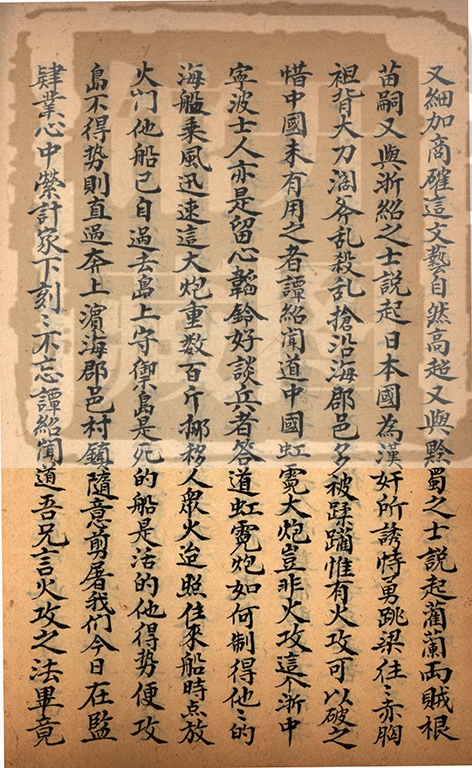 又細加商確這文藝自然高超又與黔蜀之士說起藺蘭両賊根
苗嗣又與浙紹之士說起日本國為漢奸所誘恃勇跳梁往〻赤胸
袒背大刀濶斧乱殺乱搶沿海郡邑多被蹂躪惟有火攻可以破之
惜中國未有用之者譚紹聞道中國虹霓大炮豈非火攻這个浙中
寧波士人亦是留心韜鈐好談兵者答道虹霓炮如何制得他〻的
海船乘風迅速這大炮重数百斤挪移人衆火迨照住来船時点放
火门他船已自過去島上守禦島是死的船是活的他得勢便攻
島不得勢則直過奔上濱海郡邑村鎮隨意剪屠我们今日在監
肄業心中縈計家下刻〻不忘譚紹聞道吾兄言火攻之法畢竟